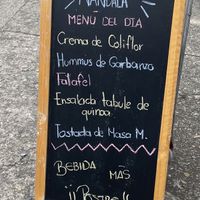 MANDALA
MENÚ DEL DIA
Crema de Coliflor
Hummus de Garbanzo
Falafel
Ensalada tabule de
quinoa
Tostada de Masa M.
BEBIDA MÁS